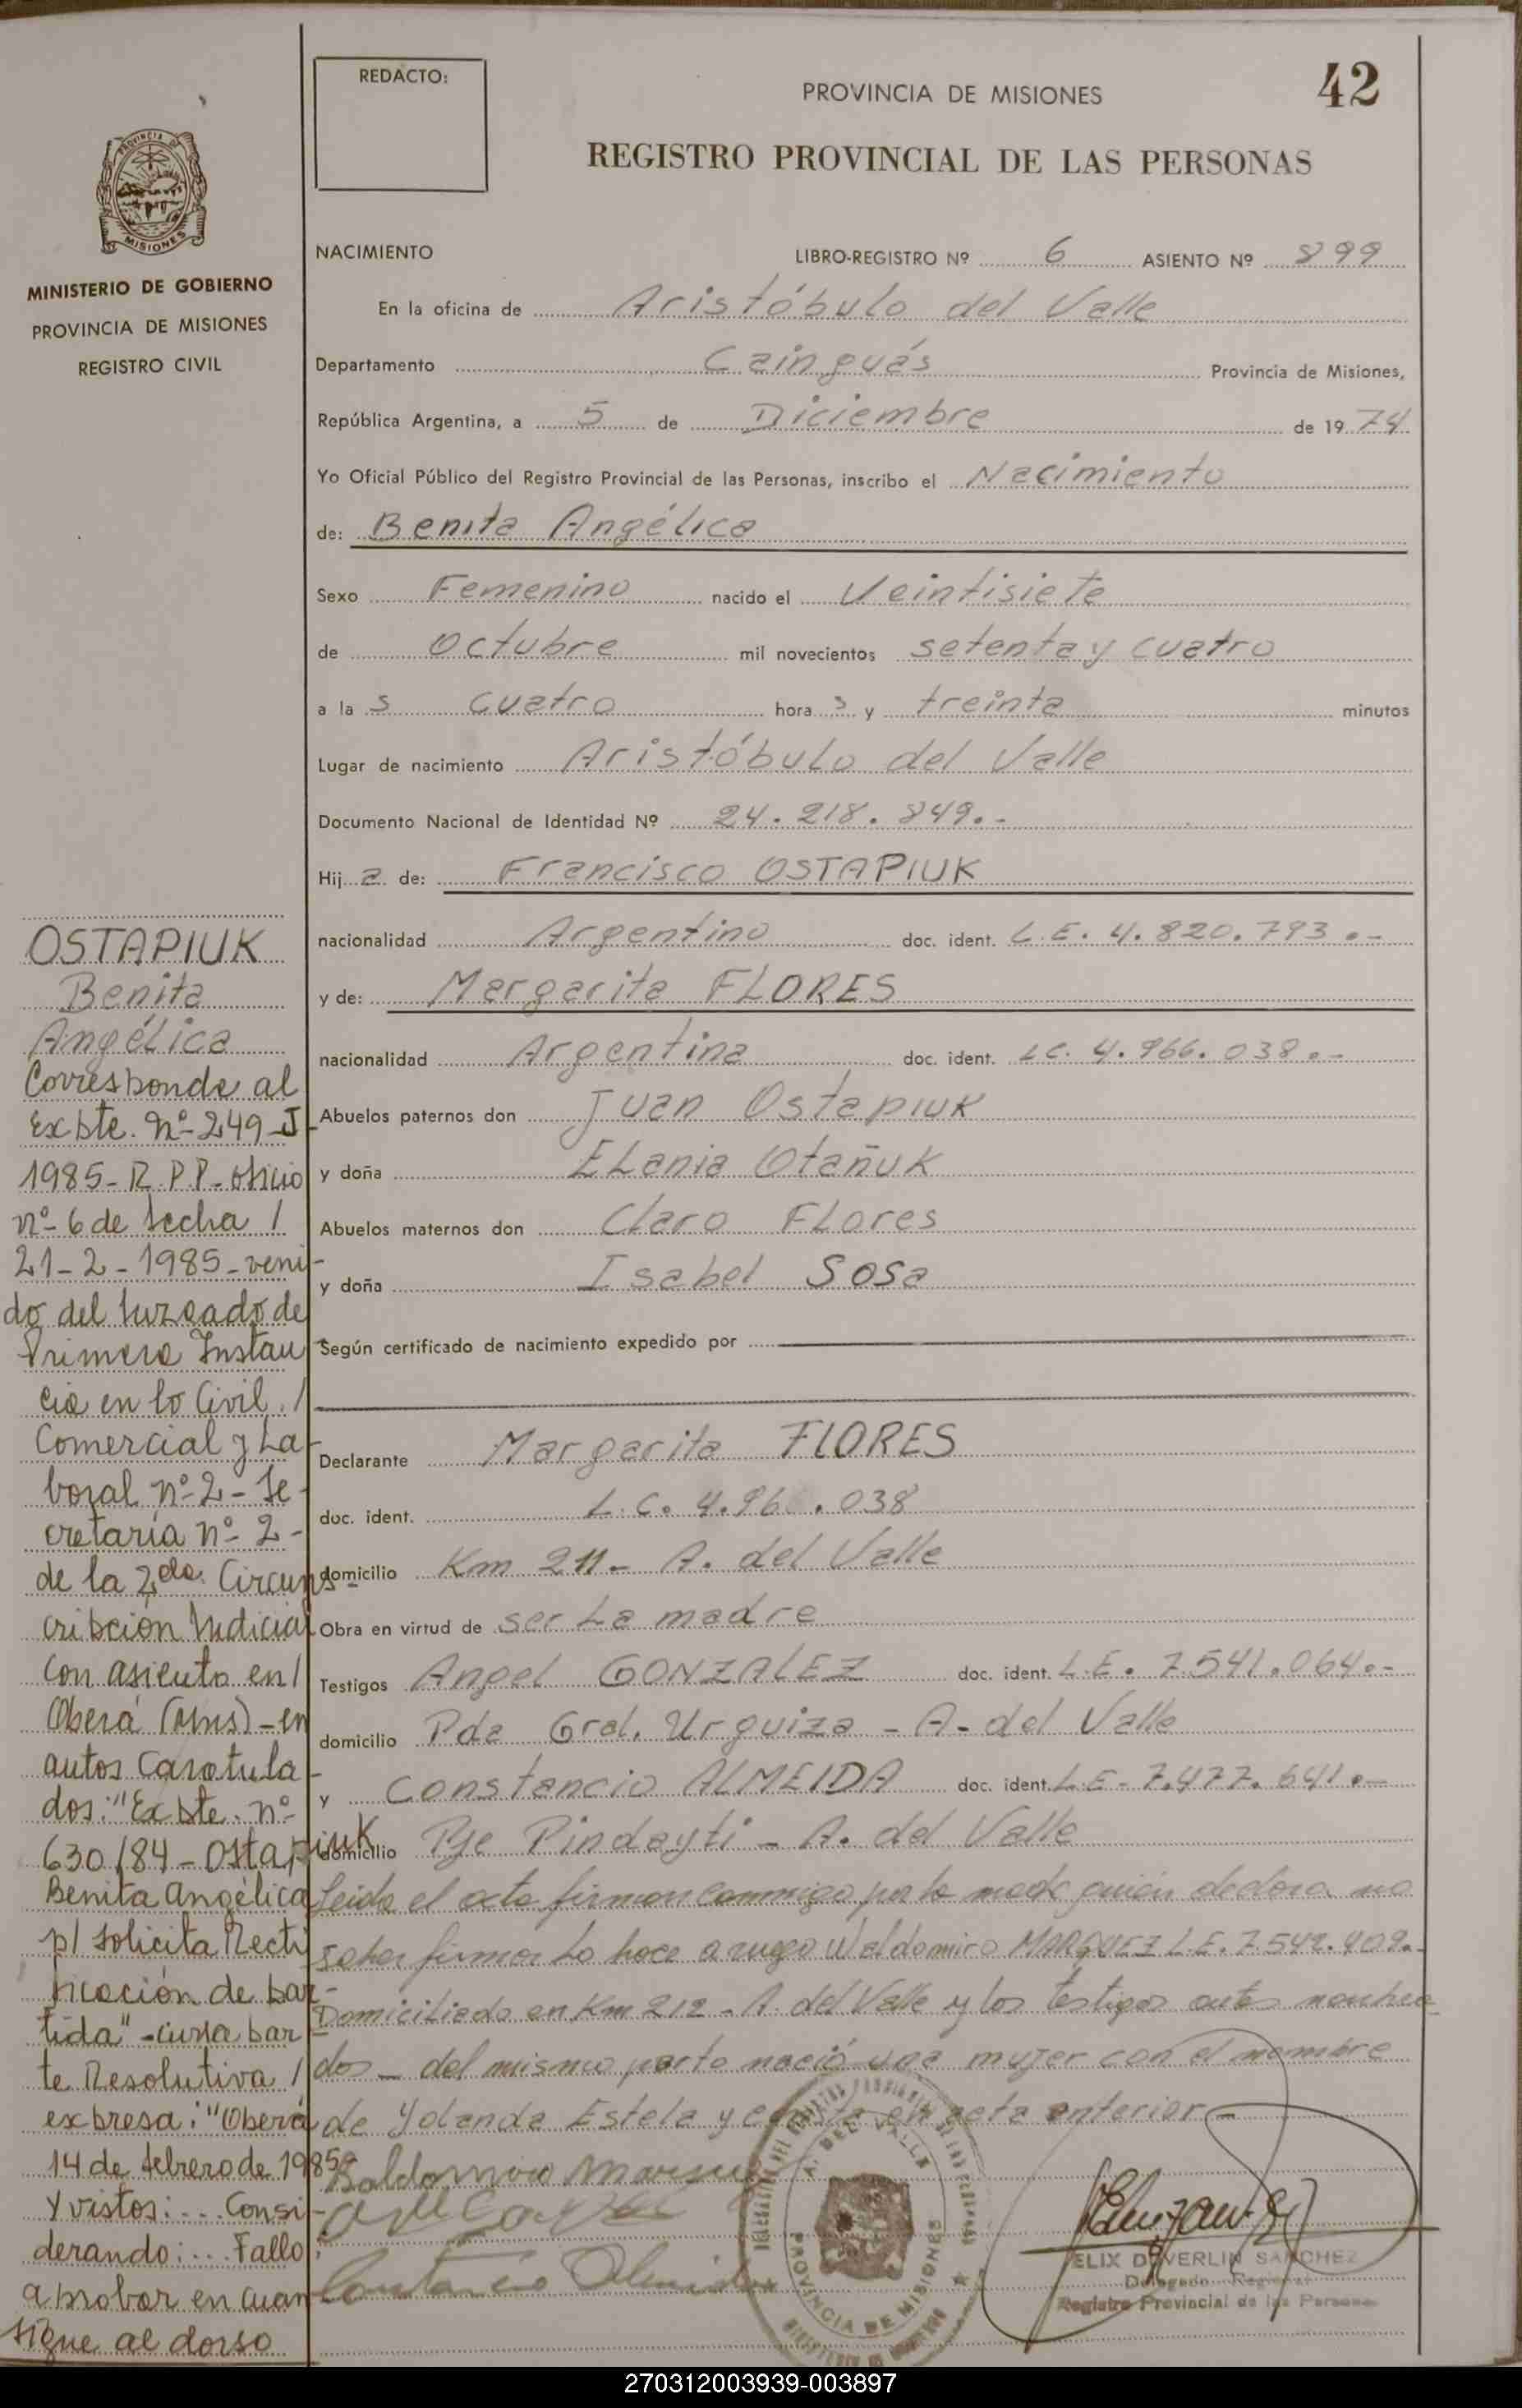 REDACTO:
PROVINCIA DE MISIONES
42
REGISTRO PROVINCIAL DE LAS PERSONAS
PROVINCIA DE
MISIONES
MINISTERIO DE GOBIERNO
PROVINCIA DE MISIONES
REGISTRO CIVIL
NACIMIENTO LIBRO-REGISTRO Nº 6 ASIENTO Nº 899
En la oficina de Aristóbulo del Valle
Departamento Cainguás Provincia de Misiones,
República Argentina, a 5 de Diciembre de 1974
Yo Oficial Público del Registro Provincial de las Personas, inscribo el Nacimiento
de: Benita Angélica
Sexo Femenino nacido el Veintisiete
de Octubre mil novecientos setenta y cuatro
a las cuatro horas y treinta minutos
Lugar de nacimiento Aristóbulo del Valle
Documento Nacional de Identidad Nº 24.218.849.-
Hija de: Francisco OSTAPIUK
nacionalidad Argentino doc. ident. L.E. 4.820.793.-
y de: Margarita FLORES
nacionalidad Argentina doc. ident. L.C. 4.966.038.-
Abuelos paternos don Juan Ostapiuk
y doña ELania Otañuk
Abuelos maternos don Claro FLores
y doña Isabel Sosa
Según certificado de nacimiento expedido por
Declarante Margarita FLORES
doc. ident. L.C. 4.96 .038
domicilio Km 211- A. del Valle
Obra en virtud de ser La madre
Testigos Angel GONZALEZ doc. ident. L.E. 7.541.064.-
domicilio Pda Gral. Urquiza - A- del Valle
y Constancio ALMEIDA doc. ident. L.E- 7.477.641.-
domicilio Pje Pindayti - A. del Valle
Leida el acta firman conmigo por la madre quién declara no
saber firmar Lo hace a ruego Waldomiro MARQUEZ L.E. 7.542.409.-
Domiciliado en Km 212 - A. del Valle y los testigos antes nombra
dos - del mismo parto nació una mujer con el nombre
de Yolanda Estela y consta en acta anterior -
Baldomiro
Constancio Almeida
A. DEL VALLE
PROVINCIA DE MISIONES
ELIX DUVERLIN SANCHEZ
Delegado Regional
Registro Provincial de las Personas
OSTAPIUK
Benita
Angélica
Corresponde al
Expte. nº- 249-J-
1985- R.P.P- oficio
nº- 6 de fecha /
21-2-1985-veni-
do del Juzgado de
Primera Instan
cia en lo Civil, /
Comercial y La-
boral nº- 2 - Se-
cretaría nº- 2 -
de la 2da. Circuns-
cripción Judicial
con asiento en /
Oberá (Mns) - en
autos caratula-
dos: "Expte. nº-
630/84 - Ostapiuk
Benita Angélica
p/ solicita Recti
ficación de par-
tida" - cuya par-
te Resolutiva /
expresa: "Oberá
14 de febrero de 1985-
Y vistos: ... Consi-
derando: ... Fallo:
aprobar en cuan
sigue al dorso
270312003939-003897